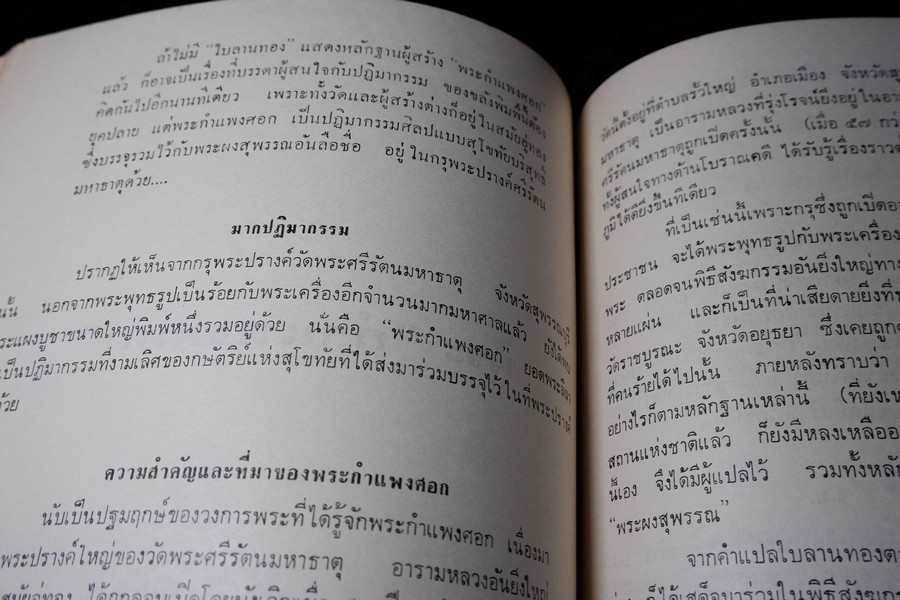 ถ้าไม่มี “ใบลานทอง” แสดงหลักฐานผู้สร้าง “พระกำแพงศอก”
แล้ว ก็อาจเป็นเรื่องที่บรรดาผู้สนใจกับปฏิมากรรม ของขลังพิมพ์นี้ต้อง
คิดกันไปอีกนานทีเดียว เพราะทั้งวัดและผู้สร้างต่างก็อยู่ในสมัยอู่ทอง
ยุคปลาย แต่พระกำแพงศอก เป็นปฏิมากรรมศิลปแบบสุโขทัยบริสุทธิ์
ซึ่งบรรจุรวมไว้กับพระผงสุพรรณอันลือชื่อ อยู่ในกรุพระปรางค์ศรีรัตน
มหาธาตุด้วย....
มากปฏิมากรรม
ปรากฏให้เห็นจากกรุพระปรางค์วัดพระศรีรัตนมหาธาตุ จังหวัดสุพรรณบุรี
นั้น นอกจากพระพุทธรูปเป็นร้อยกับพระเครื่องอีกจำนวนมากมหาศาลแล้ว ยังได้พบ
ระแผงบูชาขนาดใหญ่พิมพ์หนึ่งรวมอยู่ด้วย นั่นคือ “พระกำแพงศอก” ยอดพระลีลา
เป็นปฏิมากรรมที่งามเลิศของกษัตริย์แห่งสุโขทัยที่ได้ส่งมาร่วมบรรจุไว้ในที่พระปรางค์
ด้วย
ความสำคัญและที่มาของพระกำแพงศอก
นับเป็นปฐมฤกษ์ของวงการพระที่ได้รู้จักพระกำแพงศอก เนื่องมา
พระปรางค์ใหญ่ของวัดพระศรีรัตนมหาธาตุ อารามหลวงอันยิ่งใหญ่
สมัยอู่ทอง ได้ถูกลอบเปิดโดย
วัดนี้ตั้งอยู่ที่ตำบลรั้วใหญ่ อำเภอเมือง จังหวัดสุ
มหาธาตุ เป็นอารามหลวงที่รุ่งโรจน์ยิ่งอยู่ในอา
ศรีรัตนมหาธาตุถูกเปิดครั้งนั้น (เมื่อ ๕๗ กว่
ทั้งผู้สนใจทางด้านโบราณคดี ได้รับรู้เรื่องราวต
ภูมิได้ดียิ่งขึ้นทีเดียว
ที่เป็นเช่นนี้เพราะกรุซึ่งถูกเปิดอ
ประชาชน จะได้พระพุทธรูปกับพระเครื่อง
พระ ตลอดจนพิธีสังฆกรรมอันยิ่งใหญ่ทาง
หลายแผ่น และก็เป็นที่น่าเสียดายยิ่งที่
วัดราชบูรณะ จังหวัดอยุธยา ซึ่งเคยถูก
ที่คนร้ายได้ไปนั้น ภายหลังทราบว่า
อย่างไรก็ตามหลักฐานเหล่านี้ (ที่ยังเห
สถานแห่งชาติแล้ว ก็ยังมีหลงเหลือออ
นี้เอง จึงได้มีผู้แปลไว้ รวมทั้งหลัก
“พระผงสุพรรณ”
จากคำแปลใบลานทองต
ก็ได้เสด็จมาร่วมในพิธีสังฆก